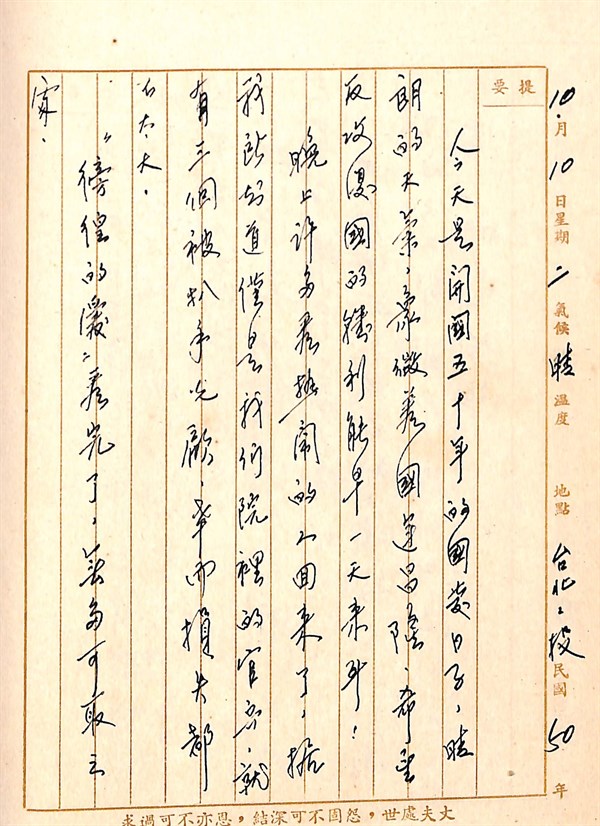 10月10日星期二氣候晴溫度 地點台北、投民國50年
提要
今天是開國五十年的國慶日子,晴
朗的天氣,象徵着國運昌隆,希望
反攻復國的勝利能早一天來到!
晚上許多看熱鬧的人回來了,據
我所知道僅是我們院裡的官兵,就
有三個被扒手光顧,幸而損失都
不太大。
"徬徨的愛"看完了,無多可取之
處。
丈夫處世,怨固不可深結,恩亦不可過求